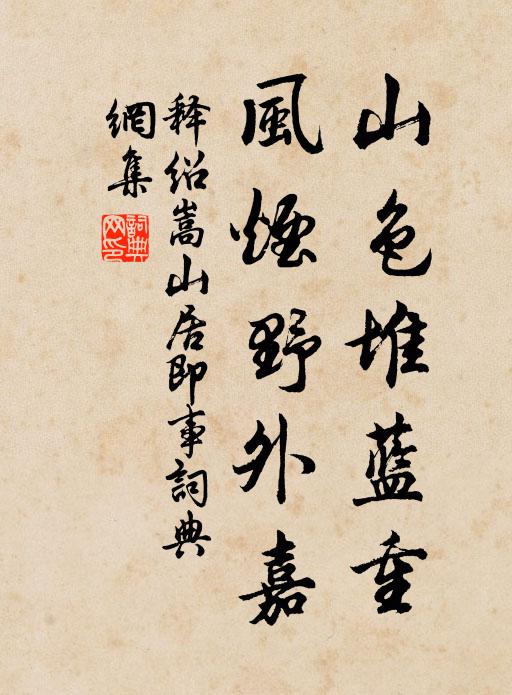 山色堆藍重
風煙野外嘉
释绍嵩山居即事詞典
網集
詞典
网印